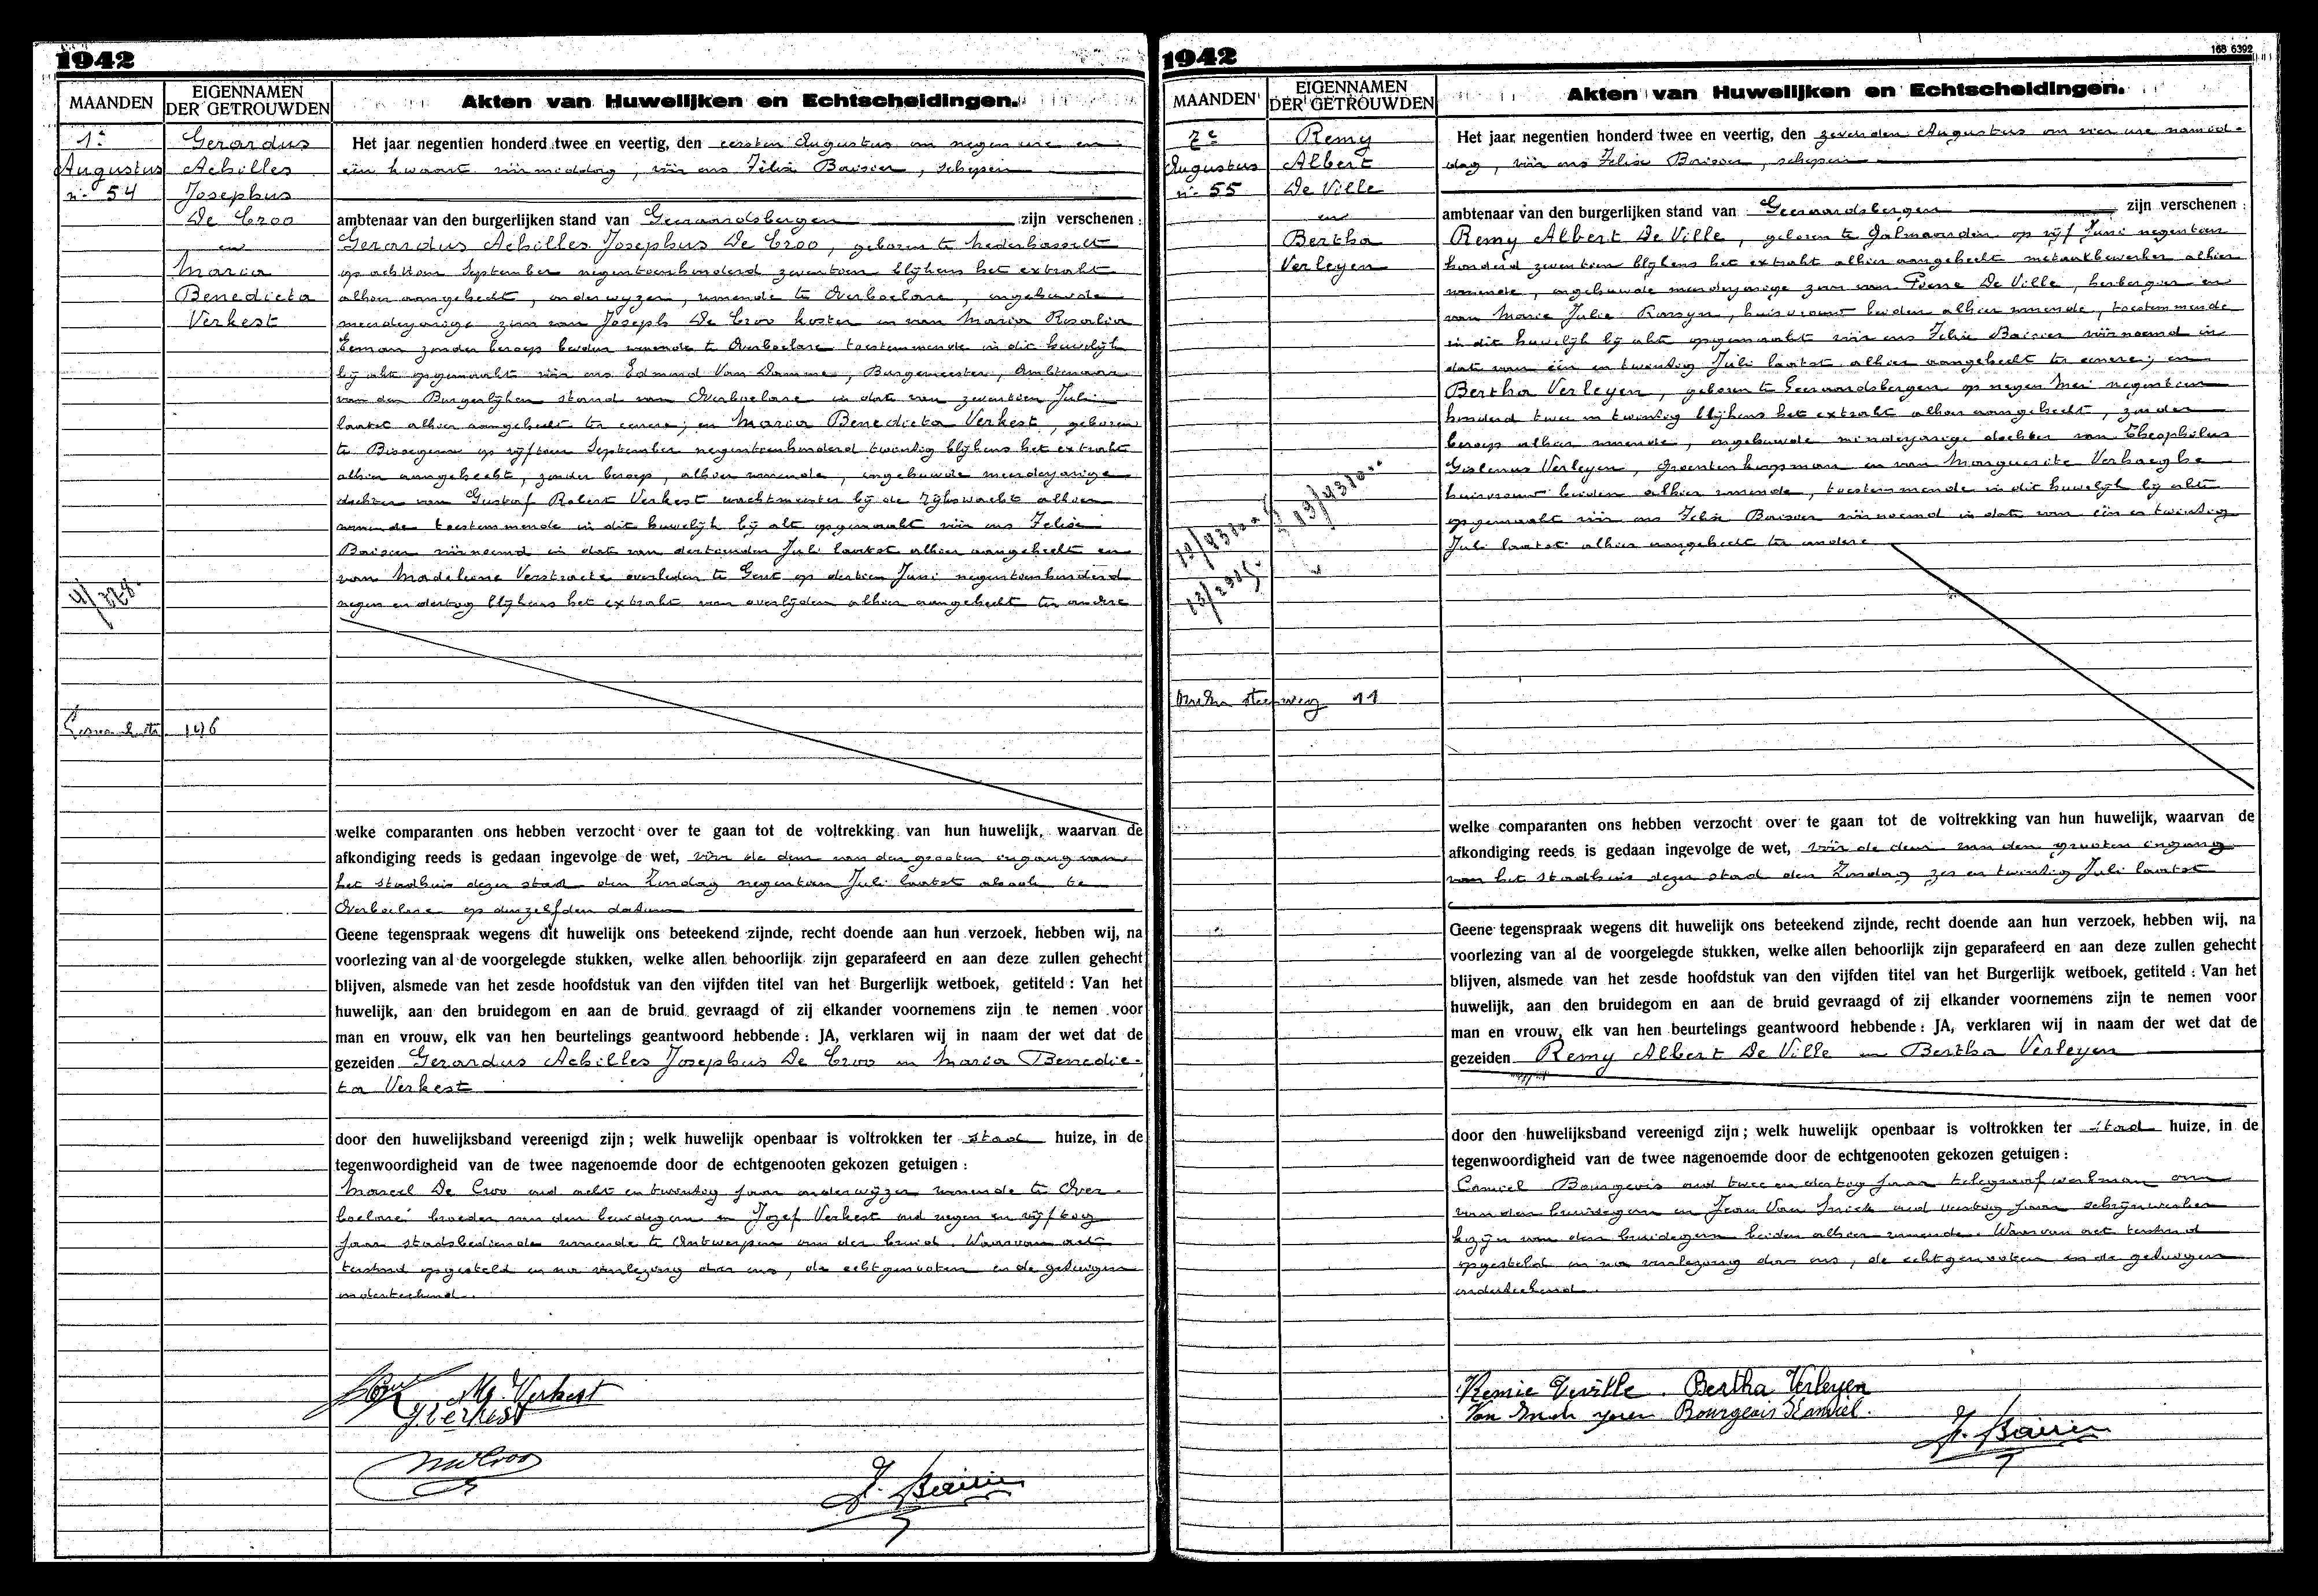 1942
MAANDEN
EIGENNAMEN
DER GETROUWDEN
Akten van Huwelijken en Echtscheidingen.
1e
Augustus
n° 54
Gerardus
Achilles
Josephus
De Croo
en
Maria
Benedicta
Verkest
Het jaar negentien honderd twee en veertig, den eersten Augustus om negen ure en
één kwaart vóórmiddag, vóór ons Felix Boisier, schepen
ambtenaar van den burgerlijken stand van Geeraardsbergen zijn verschenen:
Gerardus Achilles Josephus De Croo, geboren te Nederhasselt
op achttien September negentienhonderd zeventien blijkens het extrakt
alhier aangehecht, onderwyzer, wonende te Overboelare, ongehuwde
meerderjarige zoon van Joseph De Croo koster en van Maria Rosalia
Eeman zonder beroep beiden wonende te Overboelare toestemmende in dit huwelijk
bij akt opgemaakt vóór ons Edmond Van Damme, Burgemeester, Ambtenaar
van den Burgerlijken stand van Overboelare in date van zeventien Juli
laatst alhier aangehecht ter eenre; en Maria Benedicta Verkest, geboren
te Bissegem op vijftien September negentienhonderd twintig blijkens het extrakt
alhier aangehecht, zonder beroep, alhier wonende, ongehuwde meerderjarige
dochter van Gustaf Robert Verkest wachtmeester bij de Rijkswacht alhier
wonende toestemmende in dit huwelijk bij akt opgemaakt vóór ons Felix
Boisier vóórnoemd in date van dertienden Juli laatst alhier aangehecht en
van Madeleine Verstraete overleden te Gent op dertien Juni negentienhonderd
negen en dertog blijkens het extrakt van overlijden alhier aangehecht ter andere
4/328.
146
welke comparanten ons hebben verzocht over te gaan tot de voltrekking van hun huwelijk, waarvan de
afkondiging reeds is gedaan ingevolge de wet, vóór de deur van den grooten ingang van
het stadhuis dezer stad den Zondag negentien Juli laatst alsook te
Overboelare op denzelfden datum
Geene tegenspraak wegens dit huwelijk ons beteekend zijnde, recht doende aan hun verzoek, hebben wij, na
voorlezing van al de voorgelegde stukken, welke allen behoorlijk zijn geparafeerd en aan deze zullen gehecht
blijven, alsmede van het zesde hoofdstuk van den vijfden titel van het Burgerlijk wetboek, getiteld: Van het
huwelijk, aan den bruidegom en aan de bruid gevraagd of zij elkander voornemens zijn te nemen voor
man en vrouw, elk van hen beurtelings geantwoord hebbende: JA, verklaren wij in naam der wet dat de
gezeiden Gerardus Achilles Josephus De Croo en Maria Benedic-
ta Verkest
door den huwelijksband vereenigd zijn; welk huwelijk openbaar is voltrokken ter stad huize, in de
tegenwoordigheid van de twee nagenoemde door de echtgenooten gekozen getuigen:
Marcel De Croo oud acht en twintig jaar onderwijzer wonende te Over-
boelare broeder van den bruidegom en Jozef Verkest oud negen en vijftog
jaar stadsbediende wonende te Antwerpen om der bruid. Waarvan act
terstond opgesteld en na voorlezing door ons, de echtgenooten en de getuigen
onderteekend.
M. Verkest
J. Verkest
MDeCroo
F. Boisier
1942
168 6392
MAANDEN
EIGENNAMEN
DER GETROUWDEN
Akten van Huwelijken en Echtscheidingen.
7e
Augustus
n° 55
Remy
Albert
De Ville
en
Bertha
Verleyen
Het jaar negentien honderd twee en veertig, den zevenden Augustus om vier ure namid-
dag, vóór ons Felix Boisier, schepen
ambtenaar van den burgerlijken stand van Geeraardsbergen zijn verschenen:
Remy Albert De Ville, geboren te Galmaarden op vijf Juni negentien
honderd zeventien blijkens het extrakt alhier aangehecht metaalbewerker alhier
wonende, ongehuwde meerderjarige zoon van Pierre De Ville, herbergier en
van Marie Julie Rossyn, huisvrouw beiden alhier wonende, toestemmende
in dit huwelijk bij akt opgemaakt vóór ons Felix Boisier vóórnoemd in
date van één en twintig Juli laatst alhier aangehecht ter eenere; en
Bertha Verleyen, geboren te Geeraardsbergen op negen Mei negentien
honderd twee en twintig blijkens het extrakt alhier aangehecht, zonder
beroep alhier wonende, ongehuwde minderjarige dochter van Theophilus
Gislenus Verleyen, groentenkoopman en van Marguerite Verhaeghe
huisvrouw beiden alhier wonende, toestemmende in dit huwelijk bij akt
opgemaakt vóór ons Felix Boisier vóórnoemd in date van één en twintig
Juli laatst alhier aangehecht ter andere
steenweg 11
welke comparanten ons hebben verzocht over te gaan tot de voltrekking van hun huwelijk, waarvan de
afkondiging reeds is gedaan ingevolge de wet, vóór de deur van den grooten ingang
van het stadhuis dezer stad den Zondag zes en twintig Juli laatst
Geene tegenspraak wegens dit huwelijk ons beteekend zijnde, recht doende aan hun verzoek, hebben wij, na
voorlezing van al de voorgelegde stukken, welke allen behoorlijk zijn geparafeerd en aan deze zullen gehecht
blijven, alsmede van het zesde hoofdstuk van den vijfden titel van het Burgerlijk wetboek, getiteld: Van het
huwelijk, aan den bruidegom en aan de bruid gevraagd of zij elkander voornemens zijn te nemen voor
man en vrouw, elk van hen beurtelings geantwoord hebbende: JA, verklaren wij in naam der wet dat de
gezeiden Remy Albert De Ville en Bertha Verleyen
door den huwelijksband vereenigd zijn; welk huwelijk openbaar is voltrokken ter stad huize, in de
tegenwoordigheid van de twee nagenoemde door de echtgenooten gekozen getuigen:
Camiel Bourgeois oud twee en dertog jaar telegraafwerkman om
van den bruidegom en Jean Van Snick oud veertig jaar schrijnwerker
kozijn van den bruidegom beiden alhier wonende. Waarvan act terstond
opgesteld en na voorlezing door ons, de echtgenooten en de getuigen
onderteekend.
Remie Deville. Bertha Verleyen
Van Snick Bourgeois Kamiel.
F. Boisier